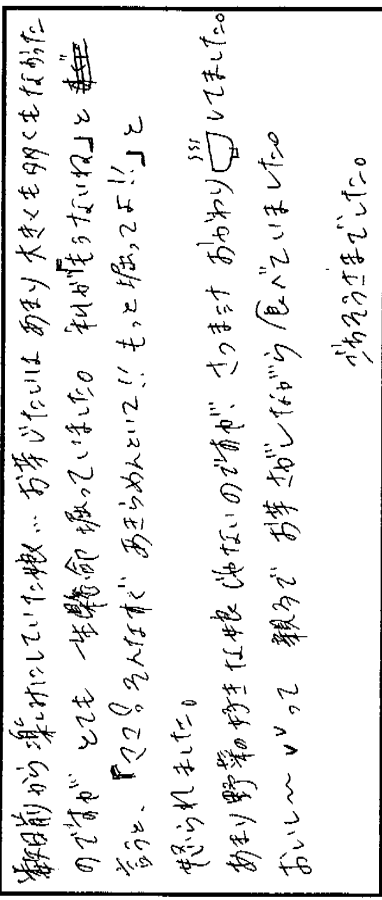 数日前から楽しみにしていた娘… お芋じたいは あまり大きくも多くもなかった
のですが とても 一生懸命 堀っていました。 私が「もうないね」と
言うと、「ママ!! そんなすぐ あきらめんといて!! もっと堀ってよ!!」と
怒られました。
あまり野菜の好きな娘じゃないのですが、さつま汁 おかわり してました。
おいし〜 って 親子で お芋 さがしながら 食べていました。
ごちそうさまでした。